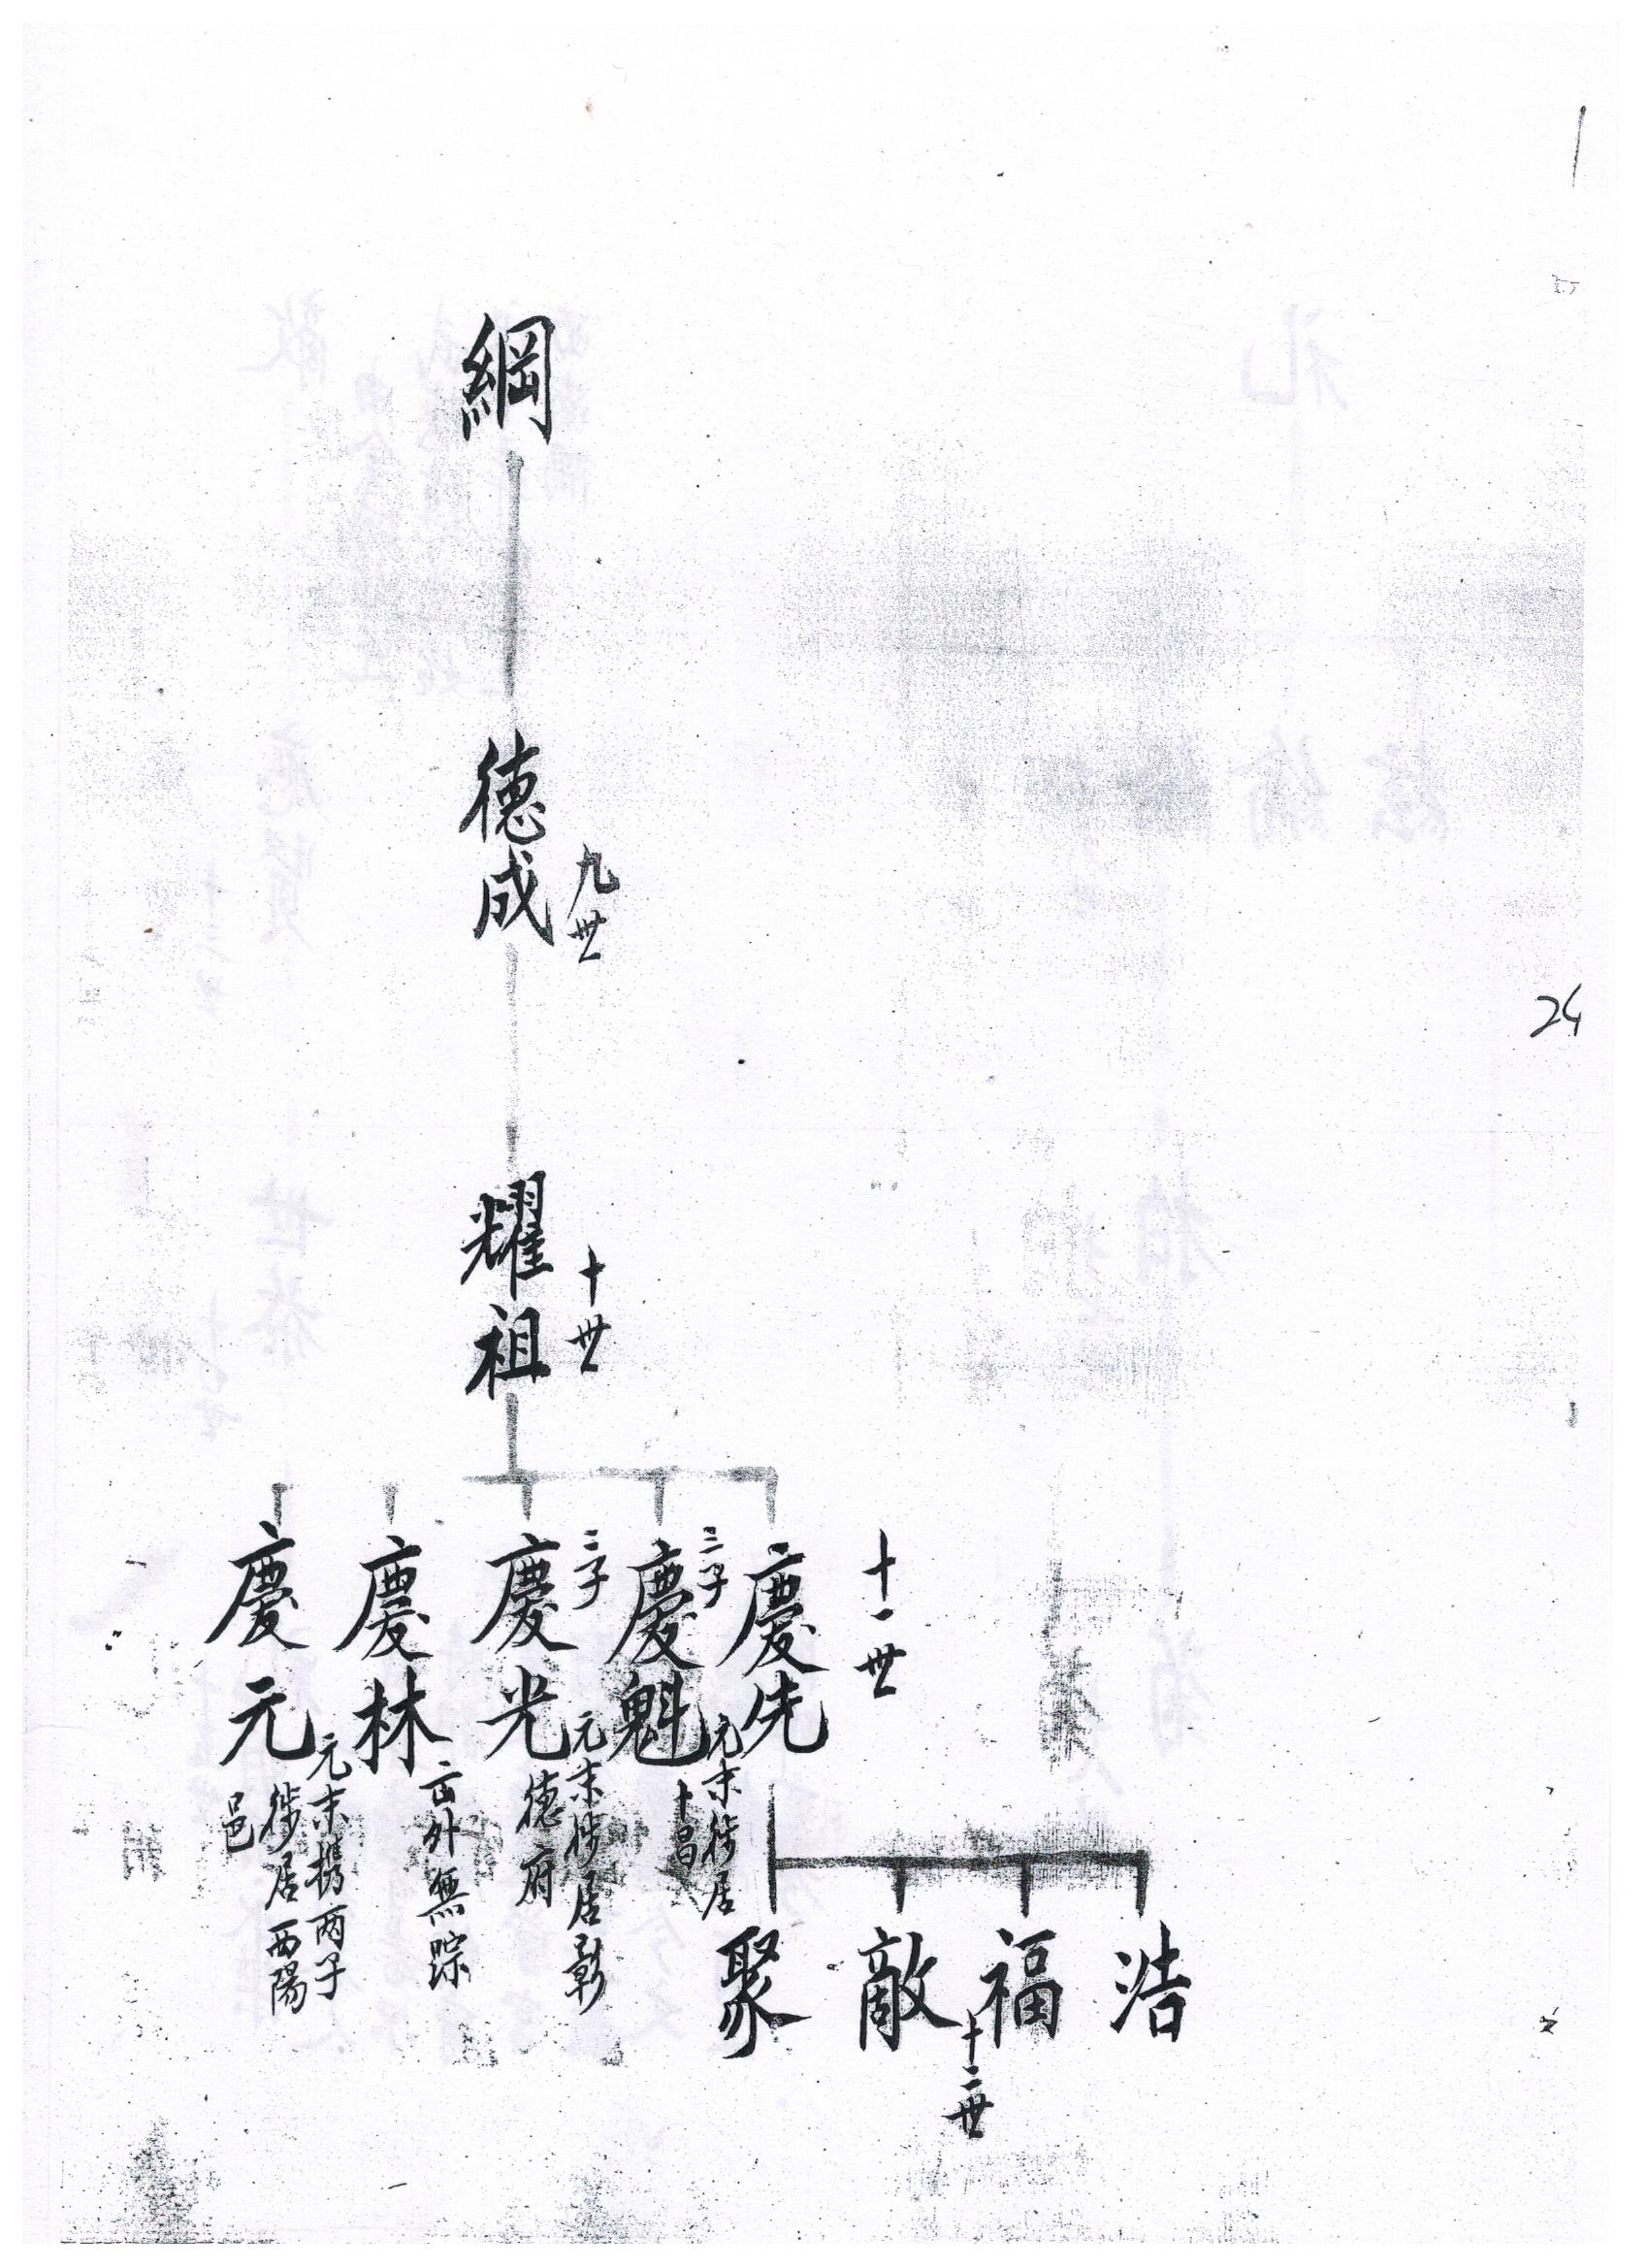 綱
德成
九世
耀祖
十世
十一世
慶先
慶魁
三子
元末徙居
十昌
慶光
三子
元末徙居彰
德府
慶林
出外無踪
慶元
元末携两子
徙居西陽
邑
浩
福
敵
聚
十二世
24